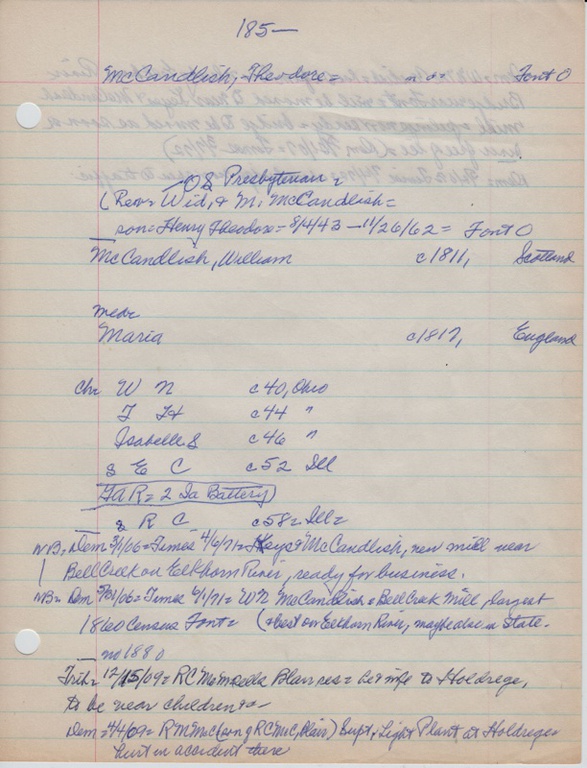 185—
McCandlish, Theodore = n d = Font O
OS Presbyterian =
(Rev = Wid, & M, McCandlish =
son = Henry Theodore = 8/4/43 — 11/26/62 = Font O
McCandlish, William c1811, Scotland
Maria c1817, England
Chr W N c40, Ohio
T H c44 "
Isabelle S c46 "
& E C c52 Ill
GAR = 2 Ia Battery
& R C c58 = Ill =
NB = Dem 3/1/06 = Times 4/6/71 = Keys & McCandlish, new mill near
Bell Creek on Elkhorn River, ready for business.
NB = Dem /06 = Times 6/1/71 = W N McCandlish = Bell Creek Mill, largest
1860 Census Font = (& best on Elkhorn River, maybe also in State -
no 1880
Trib = 12/15/09 = R C Blair res = he & wife to Holdrege,
to be near children -
Dem = 4/4/09 = R M McC (son of R C McC, Blair) Supt, Light Plant at Holdrege -
hurt in accident there